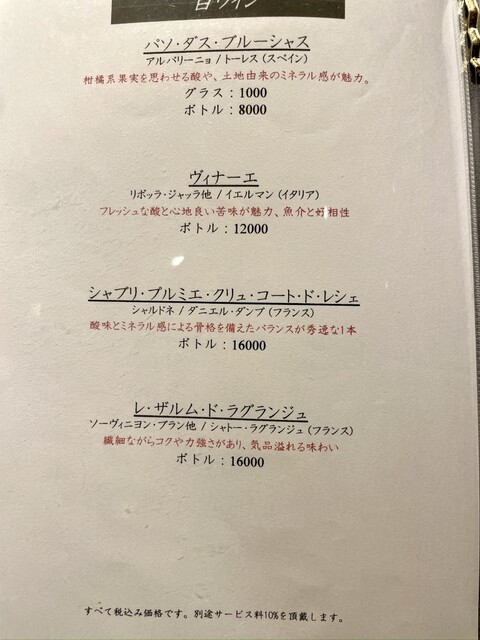 白ワイン
パソ・ダス・ブルーシャス
アルバリーニョ / トーレス (スペイン)
柑橘系果実を思わせる酸や、土地由来のミネラル感が魅力。
グラス：1000
ボトル：8000
ヴィナーエ
リボッラ・ジャッラ他 / イエルマン (イタリア)
フレッシュな酸と心地良い苦味が魅力、魚介と好相性
ボトル：12000
シャブリ・プルミエ・クリュ・コート・ド・レシェ
シャルドネ / ダニエル・ダンプ (フランス)
酸味とミネラル感による骨格を備えたバランスが秀逸な1本
ボトル：16000
レ・ザルム・ド・ラグランジュ
ソーヴィニヨン・ブラン他 / シャトー・ラグランジュ (フランス)
繊細ながらコクや力強さがあり、気品溢れる味わい
ボトル：16000
すべて税込み価格です。別途サービス料10%を頂戴します。